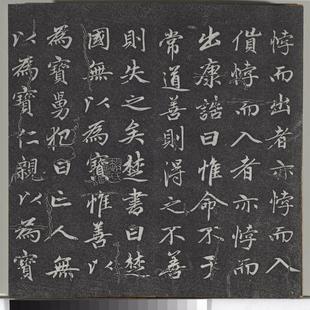 悖而出者亦悖而入
貨悖而入者亦悖而
出康誥曰惟命不于
常道善則得之不善
則失之矣楚書曰楚
國無以為寶惟善以
為寶舅犯曰亡人無
以為寶仁親以為寶